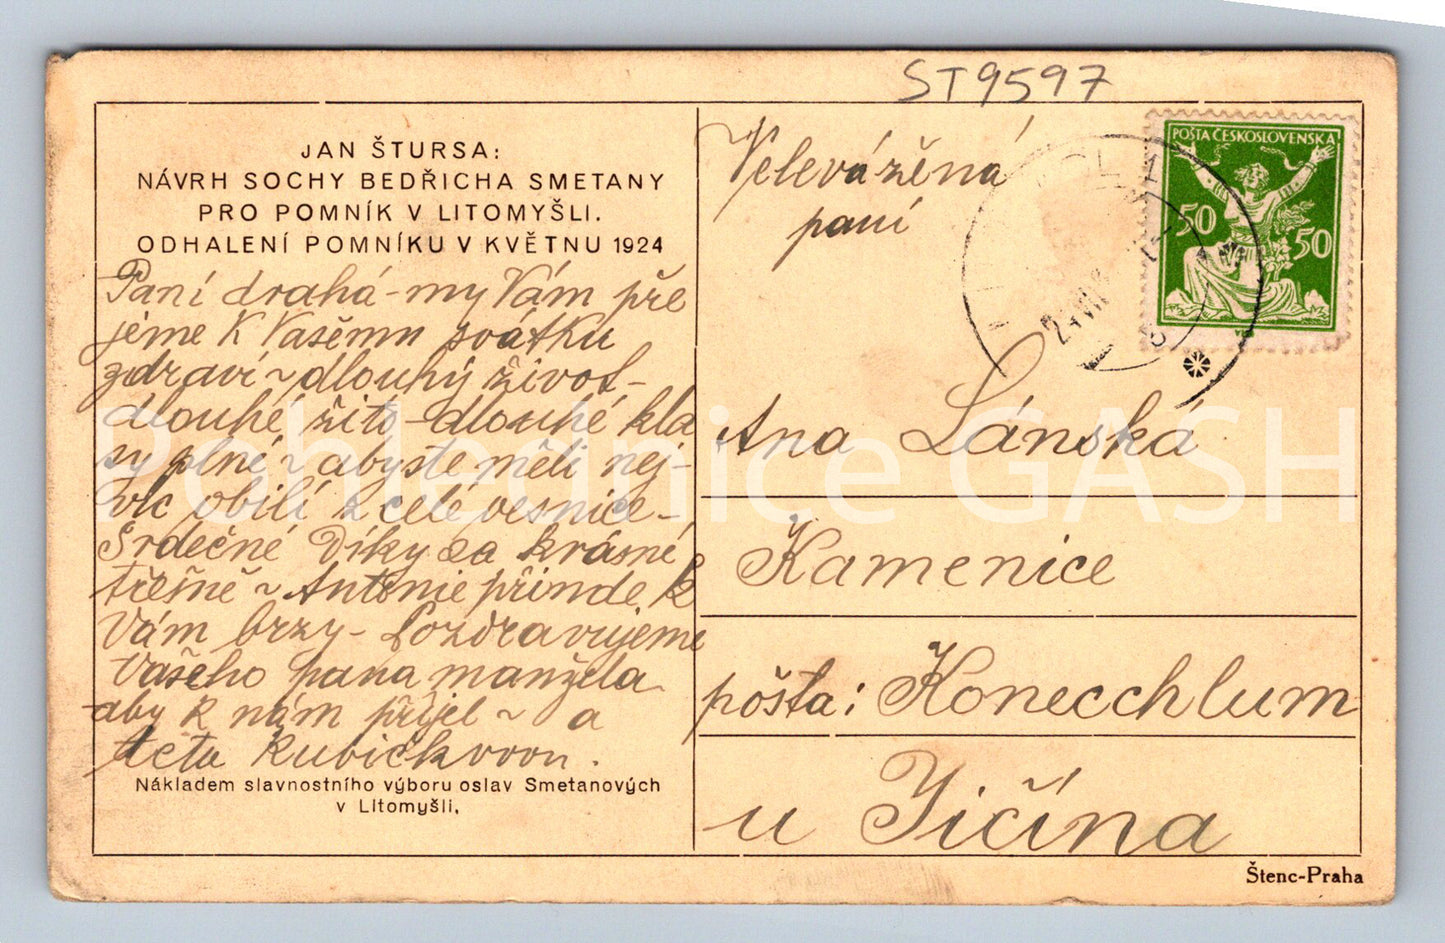 ST9597
JAN ŠTURSA:
NÁVRH SOCHY BEDŘICHA SMETANY
PRO POMNÍK V LITOMYŠLI.
ODHALENÍ POMNÍKU V KVĚTNU 1924
Paní drahá - my Vám pře
jeme K Vašemu svátku
zdraví ~ dlouhý život -
dlouhé žito - dlouhé kla
sy plné ~ abyste měli nej-
víc obilí z celé vesnice -
Srdečné Díky za krásné
třešně ~ Antonie přinde k
Vám brzy - Pozdravujeme
Vašeho pana manžela
aby k nám přijel ~ a
teta Kubíčkovou.
Nákladem slavnostního výboru oslav Smetanových
v Litomyšli.
Velevážená
paní
POŠTA ČESKOSLOVENSKÁ
50
50
Ana Lánská
Kamenice
pošta: Konecchlum
u Jičína
Štenc-Praha
Pohlednice GASH